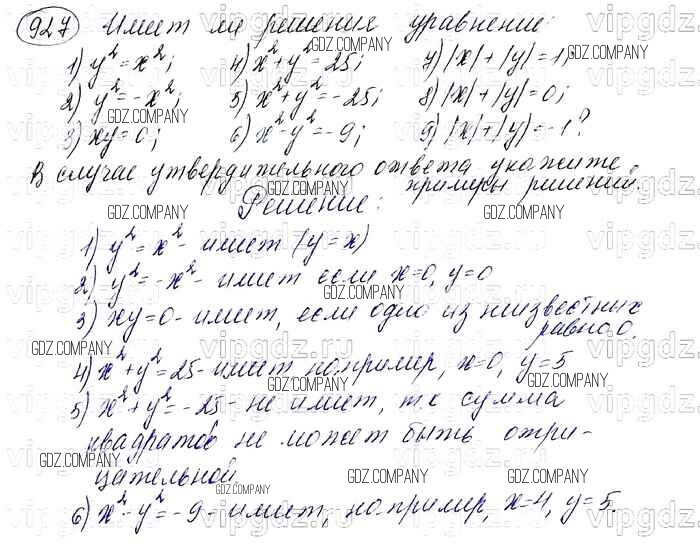 927 Имеет ли решения уравнение:
1) y² = x²; 4) x² + y² = 25; 7) |x| + |y| = 1;
2) y² = -x²; 5) x² + y² = -25; 8) |x| + |y| = 0;
3) xy = 0; 6) x² - y² = -9; 9) |x| + |y| = -1?
В случае утвердительного ответа укажите
примеры решений.
Решение:
1) y² = x² - имеет (y = x)
2) y² = -x² - имеет если x=0, y=0
3) xy=0 - имеет, если одно из неизвестных
равно 0.
4) x² + y² = 25 - имеет например, x=0, y=5
5) x² + y² = -25 - не имеет, т.к сумма
квадратов не может быть отри-
цательной
6) x² - y² = -9 - имеет, например, x=4, y=5.